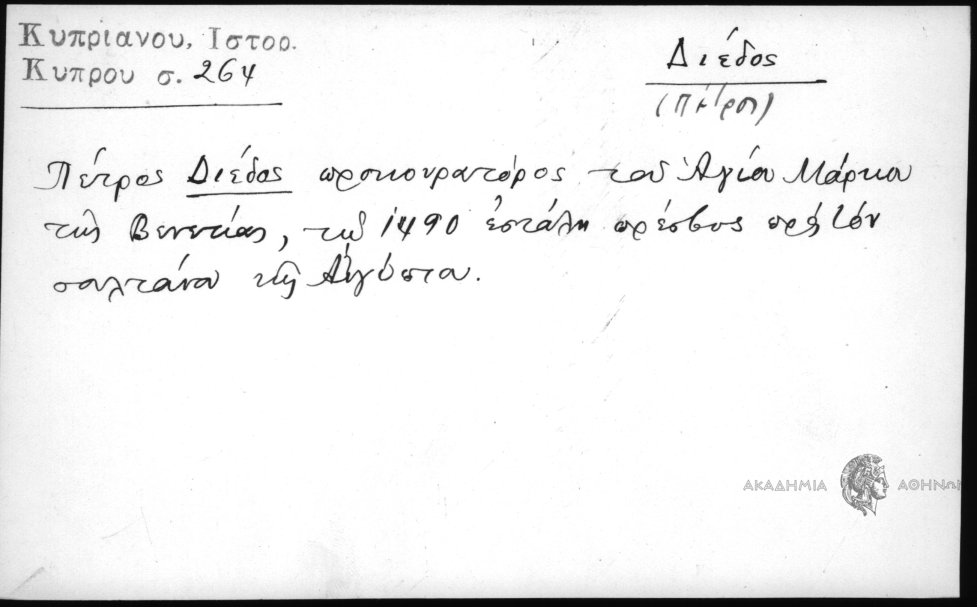 Κυπριανου, Ιστορ.
Κυπρου σ. 264
Διέδος
(Πέτρος)
Πέτρος Διέδος προκουρατόρος τοῦ Ἁγίου Μάρκου
τῆς Βενετίας, τῷ 1490 ἐστάλη πρέσβυς πρὸς τὸν
σουλτάνο τῆς Αἰγύπτου.
ΑΚΑΔΗΜΙΑ ΑΘΗΝΩΝ